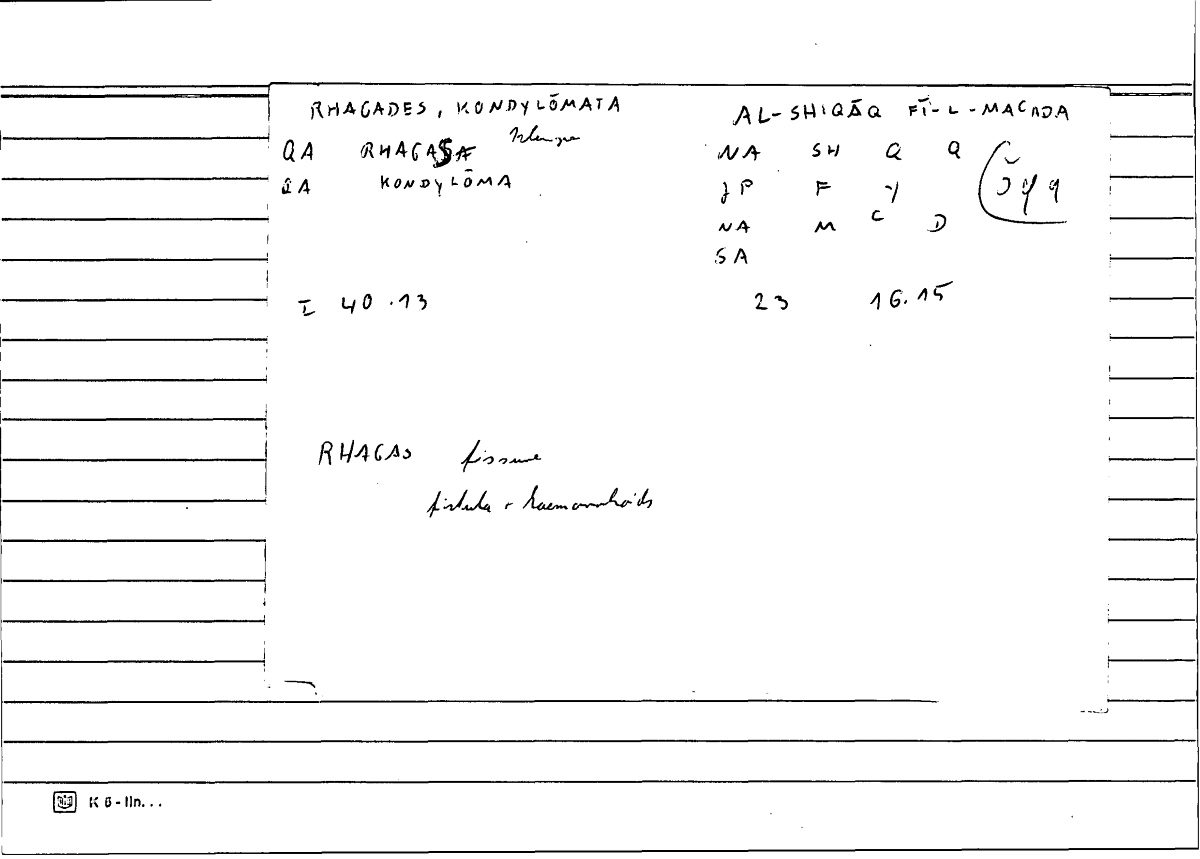 RHAGADES, KONDYLŌMATA AL-SHIQĀQ FĪ-L-MACADA
QA RHAGAS NA SH Q Q
QA KONDYLŌMA JP F Y
NA M C D
SA
I 40.13 23 16.15
RHAGAS fissure
fistula + haemorrhoids
K 6-lin...